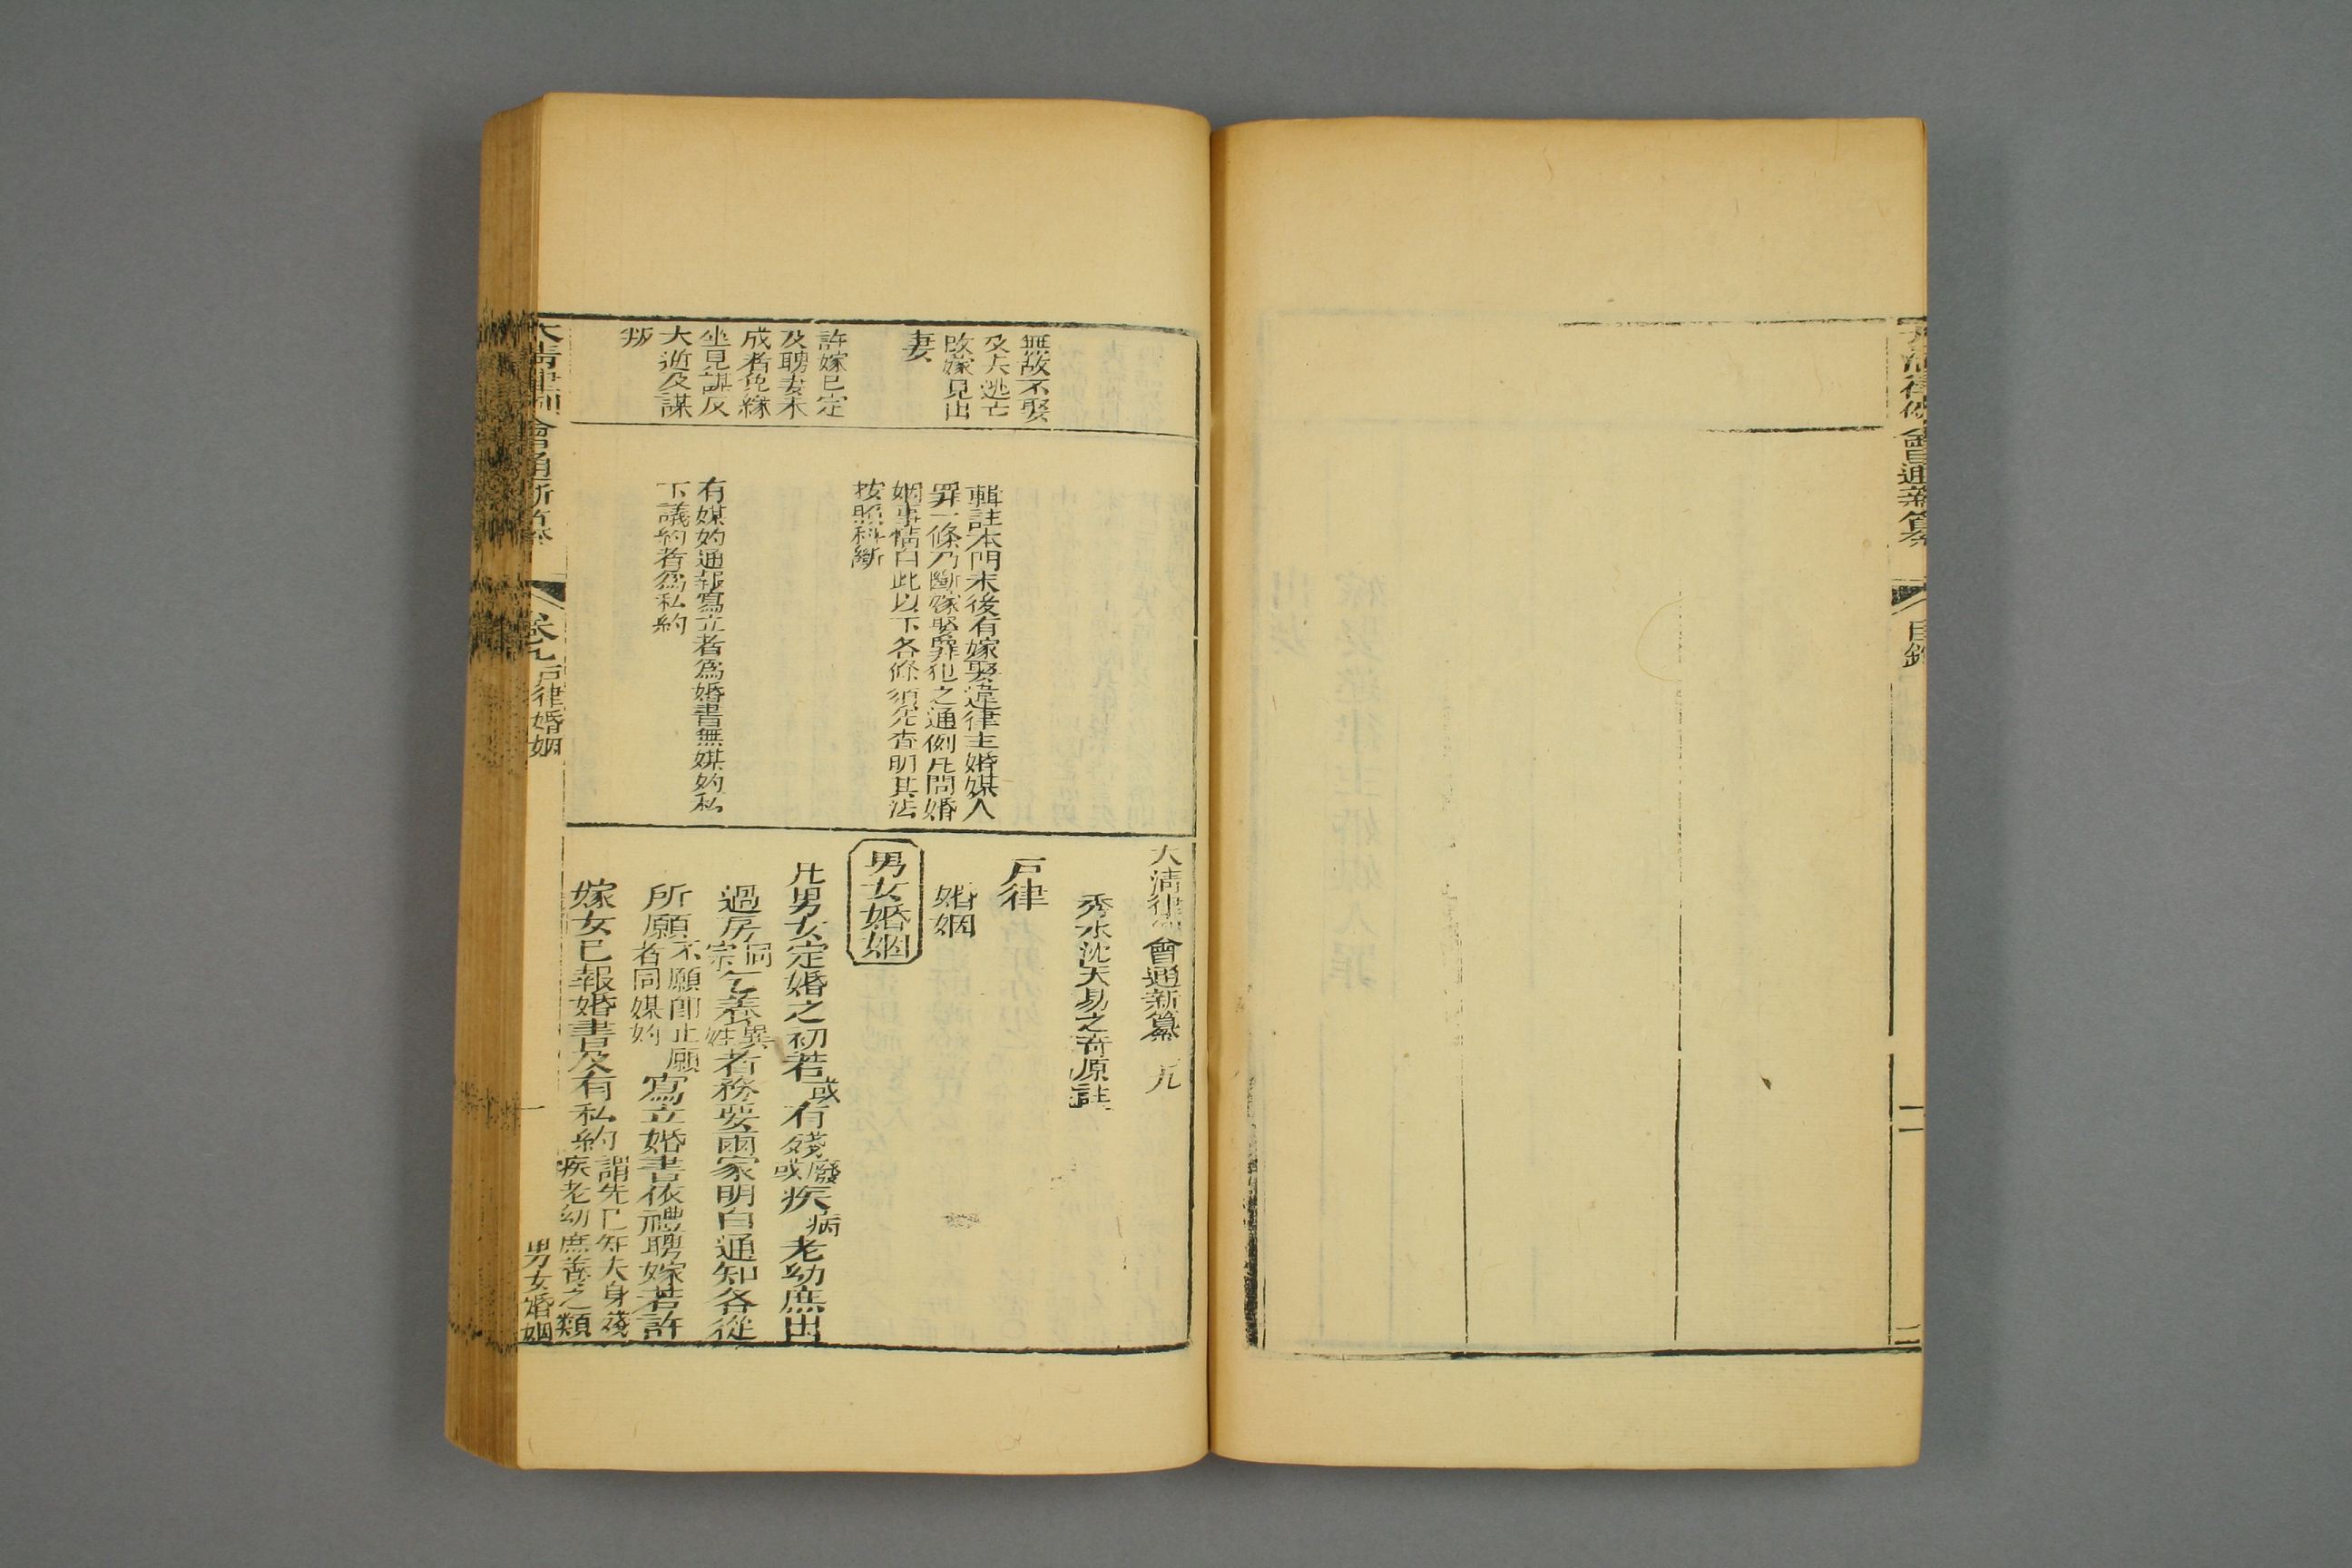 會通新纂
目錄
二
無故不娶
及夫逃亡
改嫁見出
妻
許嫁已定
及聘妻未
成者免緣
坐見謀反
大逆及謀
叛
輯註本門末後有嫁娶違律主婚媒人
罪一條乃斷嫁娶罪犯之通例凡問婚
姻事情自此以下各條須先查明其法
按照科斷
有媒妁通報寫立者爲婚書無媒妁私
下議約者爲私約
大清律例會通新纂 九
秀水沈天易之奇原註
戶律
婚姻
男女婚姻
凡男女定婚之初若或有殘廢或疾病老幼庶出
過房同宗乞養異姓者務要兩家明白通知各從
所願不願卽止願者同媒妁寫立婚書依禮聘嫁若許
嫁女已報婚書及有私約謂先已知夫身殘疾老幼庶養之類
大清律例會通新纂
卷九 戶律婚姻
一
男女婚姻